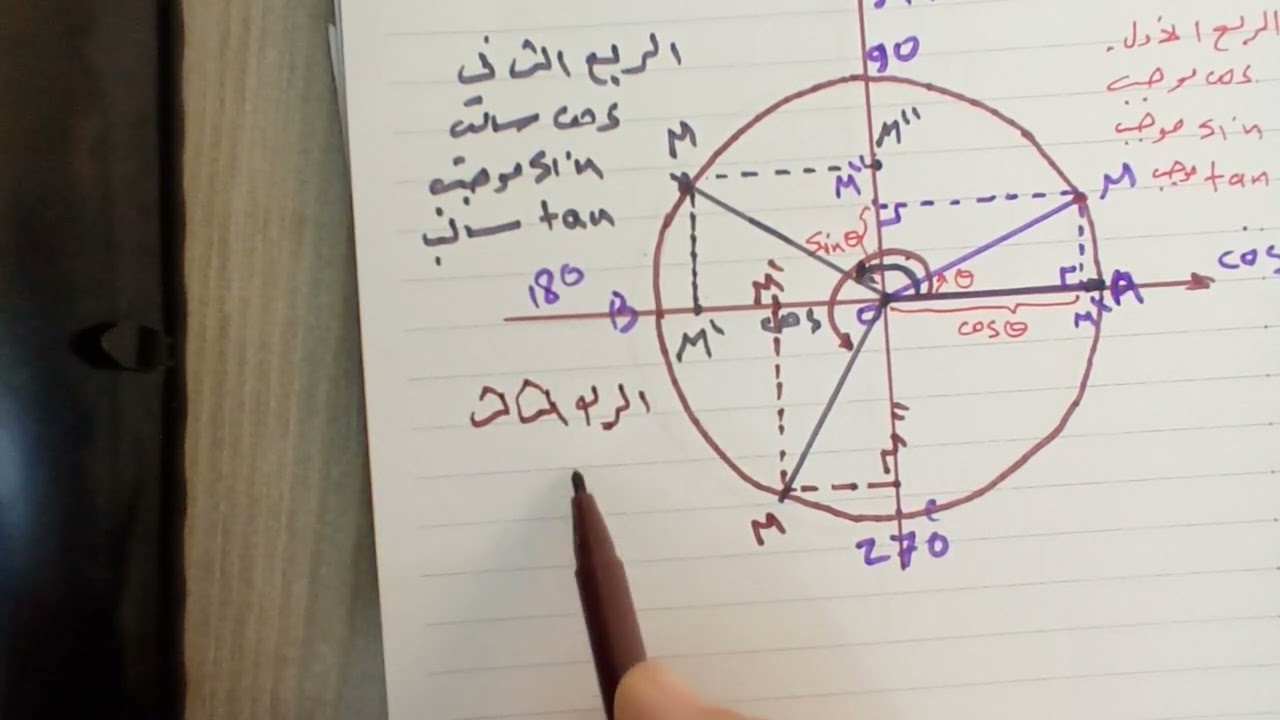 الربع الاول.
cos موجب
sin موجب
tan موجب
الربع الثاني
cos سالب
sin موجب
tan سالب
90
M
M''
M'
M
sin θ
θ
cos
180
B
M'
cos
O
cos θ
M'
A
M'
الربع الثالث
M
C
270